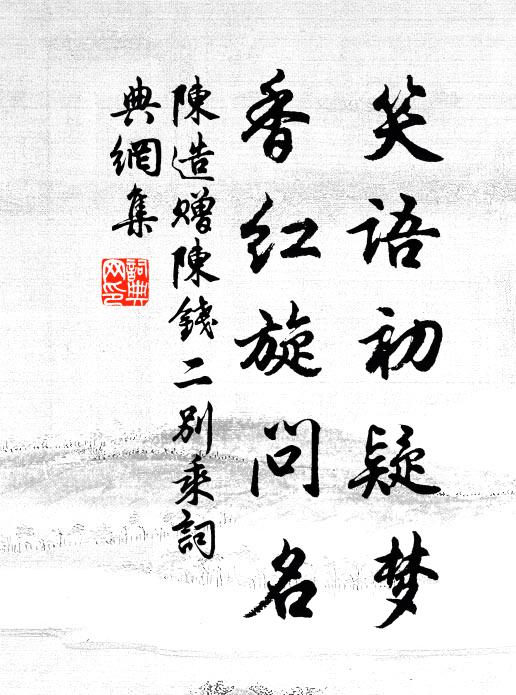 笑语初疑梦
香红旋问名
陳造赠陳錢二別乘詞
典網集
詞典网印